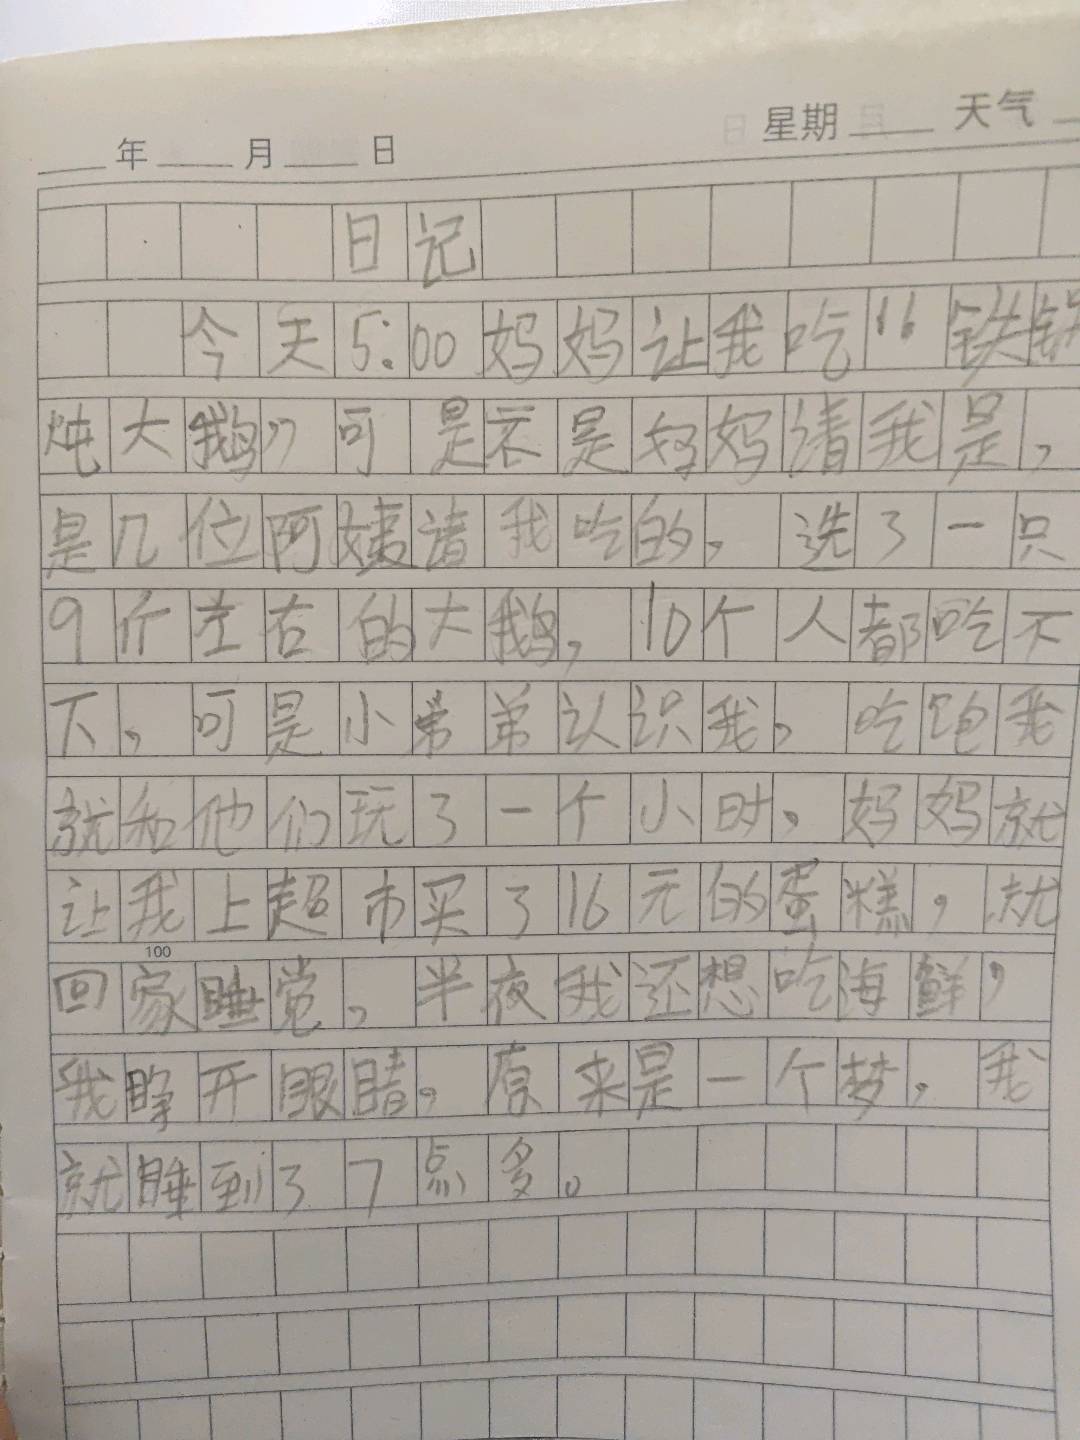 年 月 日 星期 天气
日记
今天5:00妈妈让我吃“铁锅
炖大鹅”可是不是妈妈请我是，
是几位阿姨请我吃的，选了一只
9斤左右的大鹅，10个人都吃不
下，可是小弟弟认识我，吃饱我
就和他们玩了一个小时，妈妈就
让我上超市买了16元的蛋糕，就
100
回家睡觉，半夜我还想吃海鲜，
我睁开眼睛。原来是一个梦，我
就睡到了7点多。